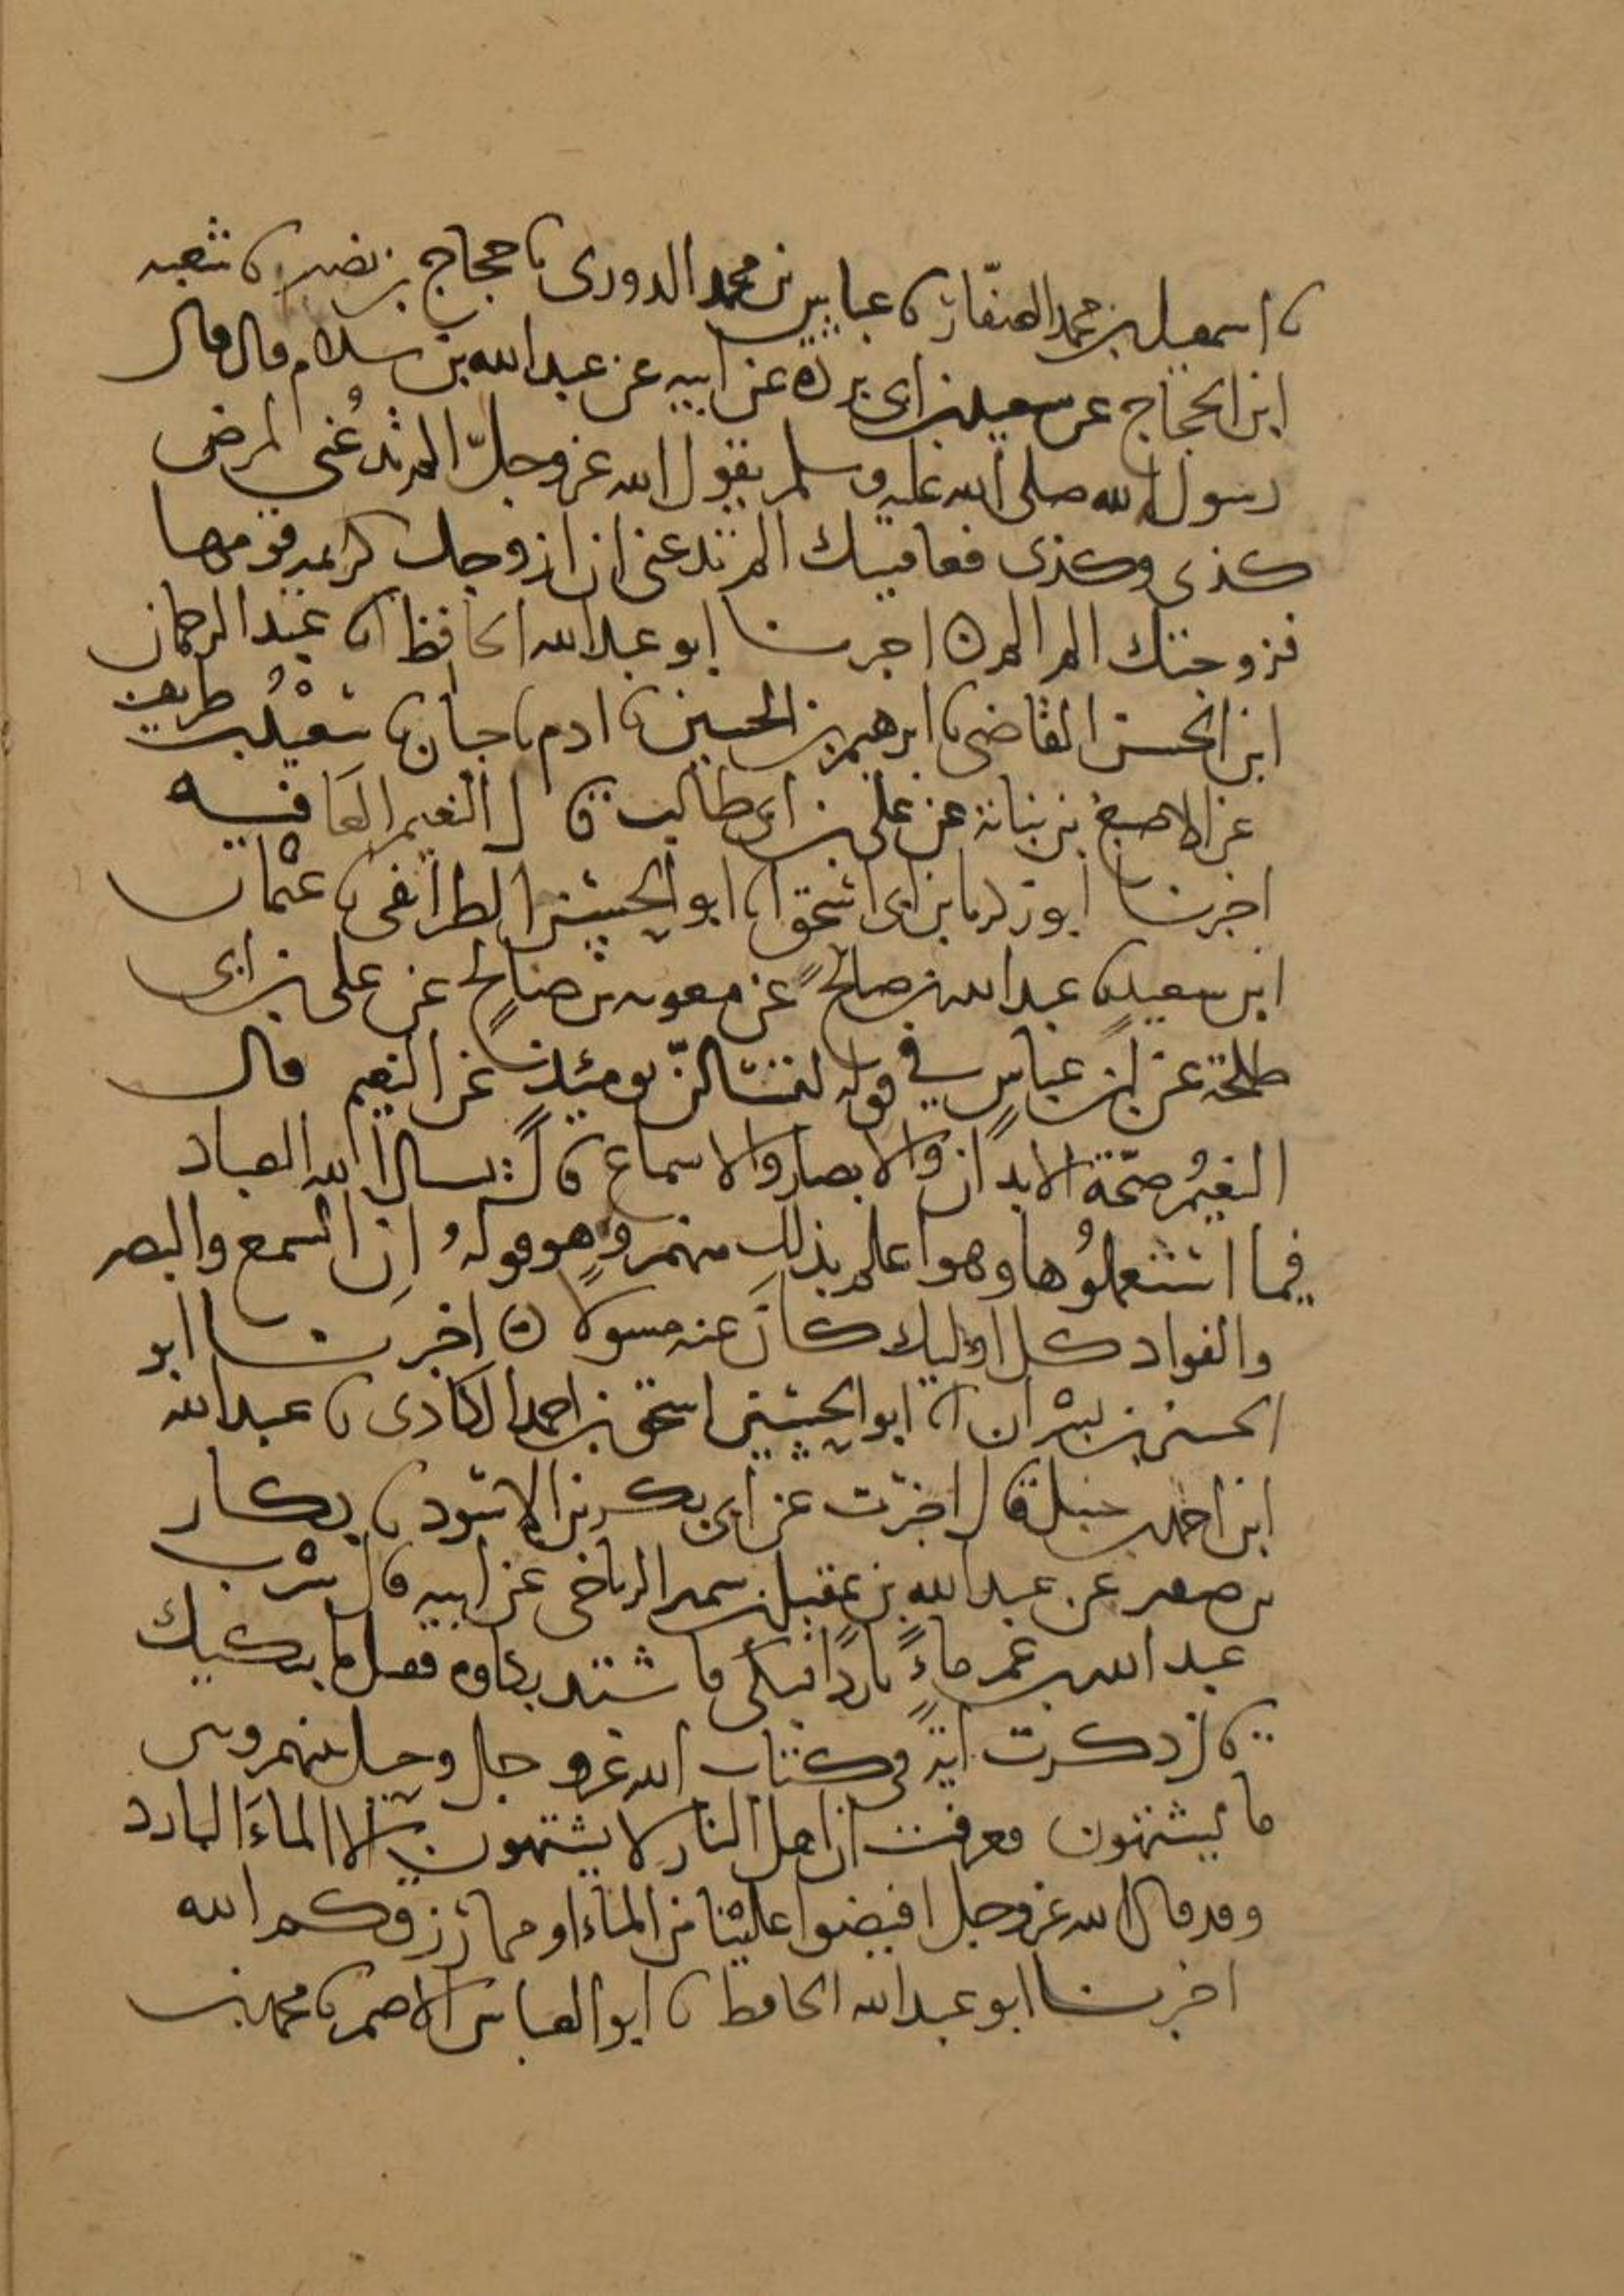 نا اسمعيل بن محمد الصفار نا عباس بن محمد الدورى نا حجاج بن نصير نا شعبه
ابن الحجاج عن سعيد بن ابى بردة عن ابيه عن عبد الله بن سلام قال قال
رسول الله صلى الله عليه وسلم يقول الله عز وجلّ الم تدعُنى لمرض
كذى وكذى فعافيتك الم تدعنى ان ازوجك كريمه قومها
فزوجتك الم الم اخبرنا ابو عبد الله الحافظ انا عبد الرحمان
ابن الحسن القاضى نا ابرهيم بن الحسين نا ادم نا حبان نا سعد بن طريف
عن الاصبغ بن نباتة عن على بن ابى طالب قال النعيم العافيه
اخبرنا ابو زكريا بن ابى اسحق انا ابو الحسن الطرائفى نا عثمان
ابن سعيد نا عبد الله بن صالح عن معويه بن صالح عن على بن ابى
طلحة عن ابن عباسٍ فى قوله لتسئالنّ يومئذٍ عن النعيم قال
النعيمُ صحّة الابدان والابصار والاسماع قال يسال الله العباد
فيما استعملوُها وهو اعلم بذلك منهم وهو قولهُ اِن السمع والبصر
والفواد كل اوليك كانَ عنه مسولا اخبرنا ابو
الحسن بن بشران انا ابو الحسين اسحق بن احمد الكادى نا عبد الله
ابن احمد بن حنبل قال اخبرت عن ابى بكر بن الاسود نا بكار
بن صعر عن عبد الله بن عقيل بن سمير الرياحى عن ابيه قال شرب
عبد الله بن عمر ماءً باردًا فبكى فاشتد بكاوه فقيل ما يبكيك
قال ذكرت اية فى كتاب الله عز وجل وحيل بينهم وبين
ما يشتهون فعرفت ان اهل النار لا يشتهون الا الماءَ البارد
وقد قال الله عز وجل افيضوا علينا من الماء او مما رزقكم الله
اخبرنا ابو عبد الله الحافظ نا ابو العباس الاصم نا محمد بن